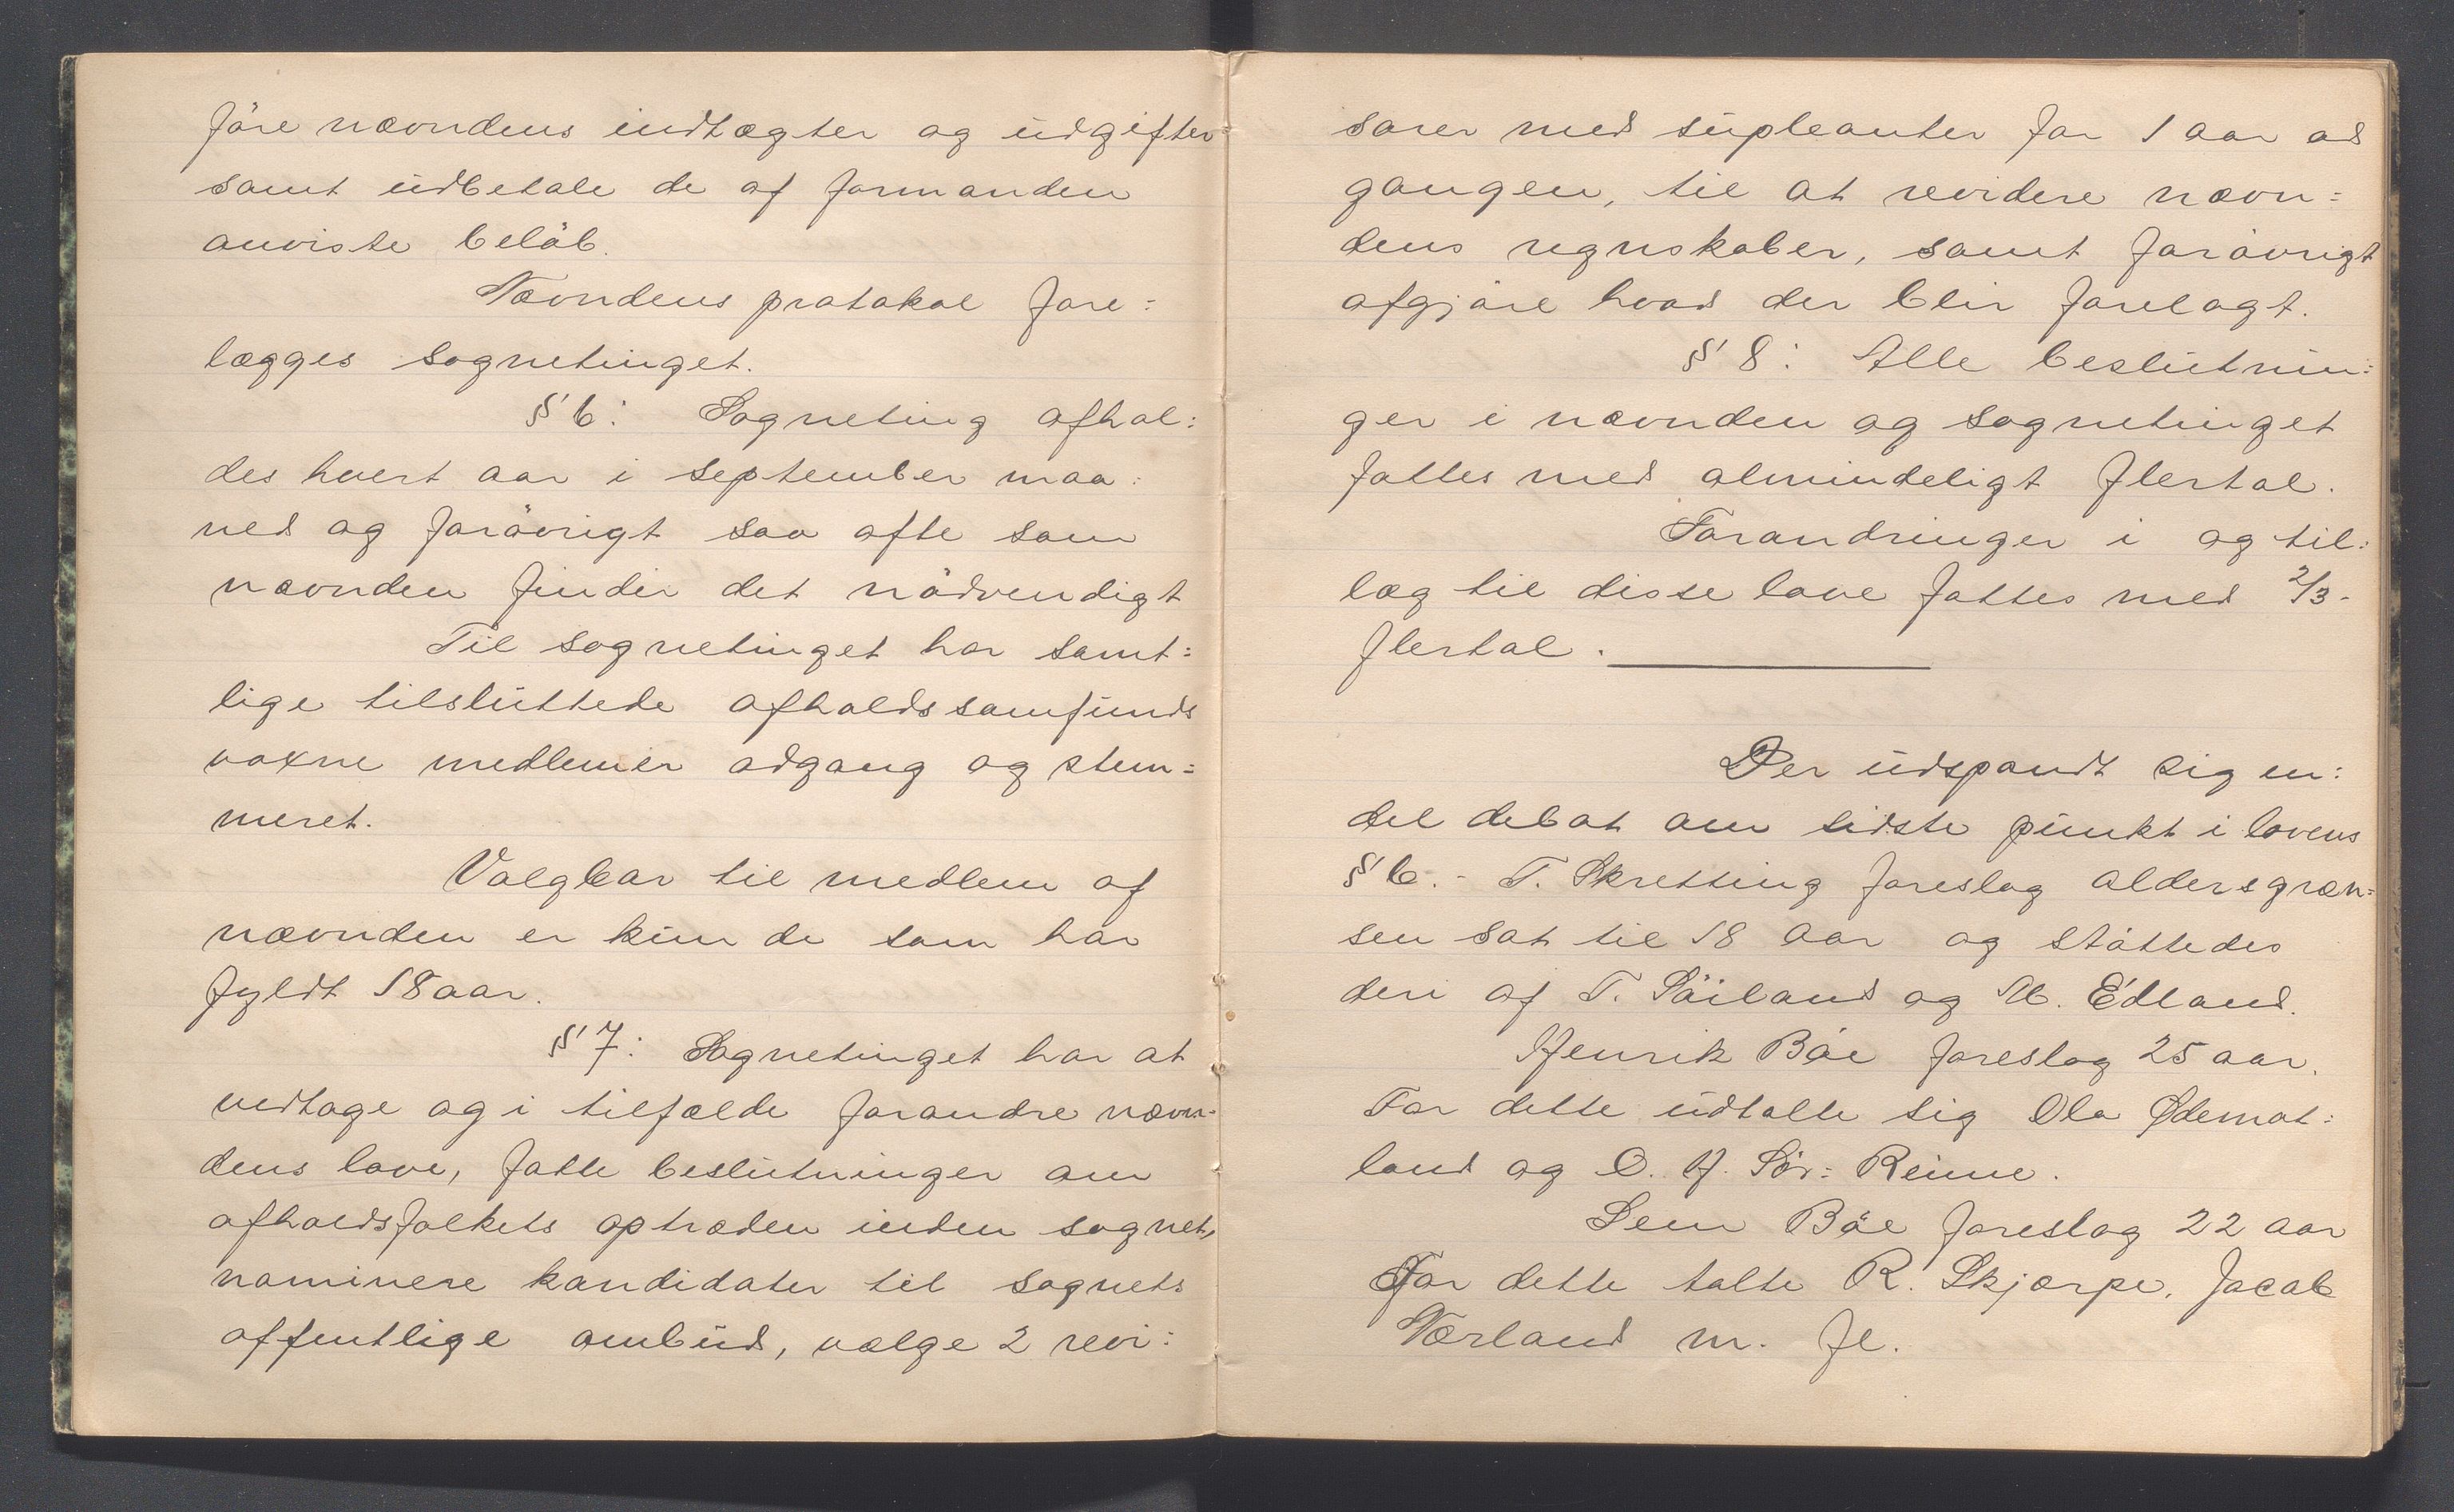 före nævndens indtægter og udgifter
samt udbetale de af formanden
anviste belöb.
Nævndens protokol fore=
lægges sognetinget.
§ 6: Sogneting afhol=
des hvert aar i september maa=
ned og forövrigt saa ofte som
nævnden finder det nödvendigt
Til sognetinget har samt=
lige tilsluttede afholdssamfunds
voxne medlemer adgang og stem=
meret.
Valgbar til medlem af
nævnden er kun de som har
fyldt 18 aar.
§ 7: Sognetinget har at
vedtage og i tilfælde forandre nævn=
dens love, fatte beslutninger om
afholdsfolkets optræden inden sognet,
nominere kandidater til sognets
offentlige ombud, vælge 2 revi=
sorer med supleanter for 1 aar ad
gangen, til at revidere nævn=
dens regnskaber, samt forövrigt
afgjöre hvad der blir forelagt.
§ 8: Alle beslutnin=
ger i nævnden og sognetinget
fattes med almindeligt flertal.
Forandringer i og til=
læg til disse love fattes med 2/3-
flertal.
Der udspandt sig en=
del debat om sidste punkt i lovens
§ 6. - T. Skretting foreslog aldersgræn=
sen sat til 18 aar og stöttedes
deri af T. Söiland og M. Edland.
Henrik Böe foreslog 25 aar.
For dette udtalte sig Ola Ødemot=
land og O. H. Sör= Reime.
Sem Böe foreslog 22 aar
For dette talte R. Skjærpe, Jacob
Nærland m. fl.